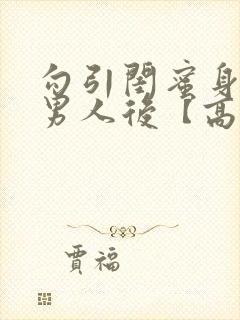 勾引閨蜜身
男人後【高
賈福